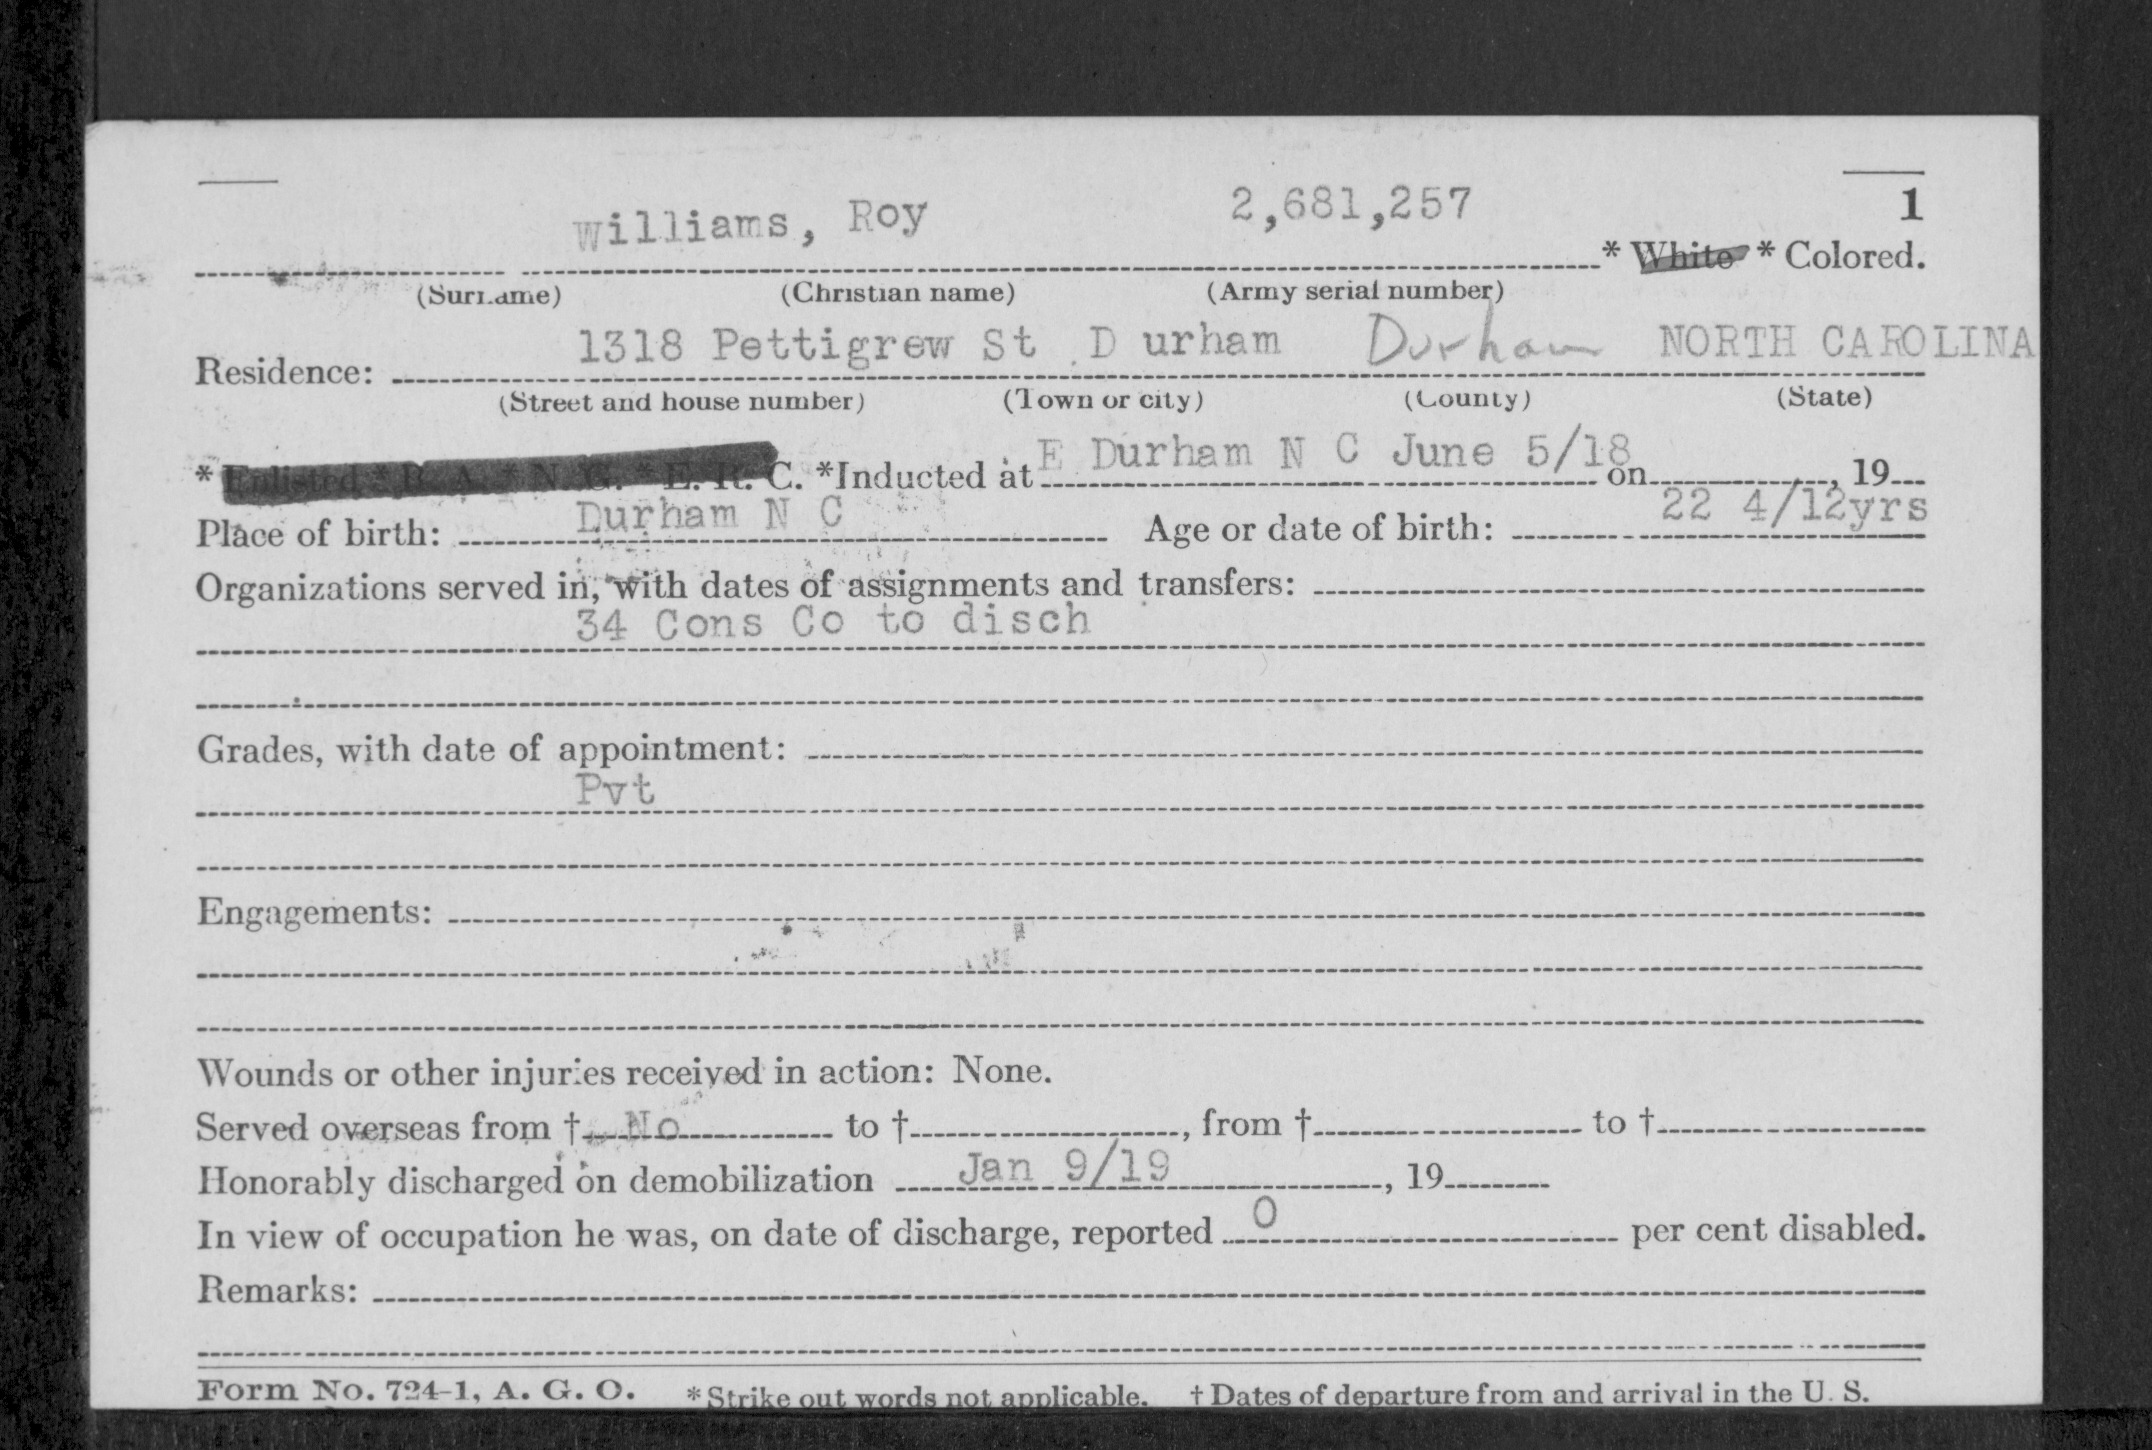 1
Williams, Roy 2,681,257
* White * Colored.
(Surname) (Christian name) (Army serial number)
Residence: 1318 Pettigrew St D urham Durham NORTH CAROLINA
(Street and house number) (Town or city) (County) (State)
* Enlisted * R. A. * N. G. * E. R. C. *Inducted at E Durham N C June 5/18 on , 19
Place of birth: Durham N C Age or date of birth: 22 4/12yrs
Organizations served in, with dates of assignments and transfers:
34 Cons Co to disch
Grades, with date of appointment:
Pvt
Engagements:
Wounds or other injuries received in action: None.
Served overseas from † No to † , from † to †
Honorably discharged on demobilization Jan 9/19 , 19
In view of occupation he was, on date of discharge, reported 0 per cent disabled.
Remarks:
Form No. 724-1, A. G. O. * Strike out words not applicable. † Dates of departure from and arrival in the U. S.